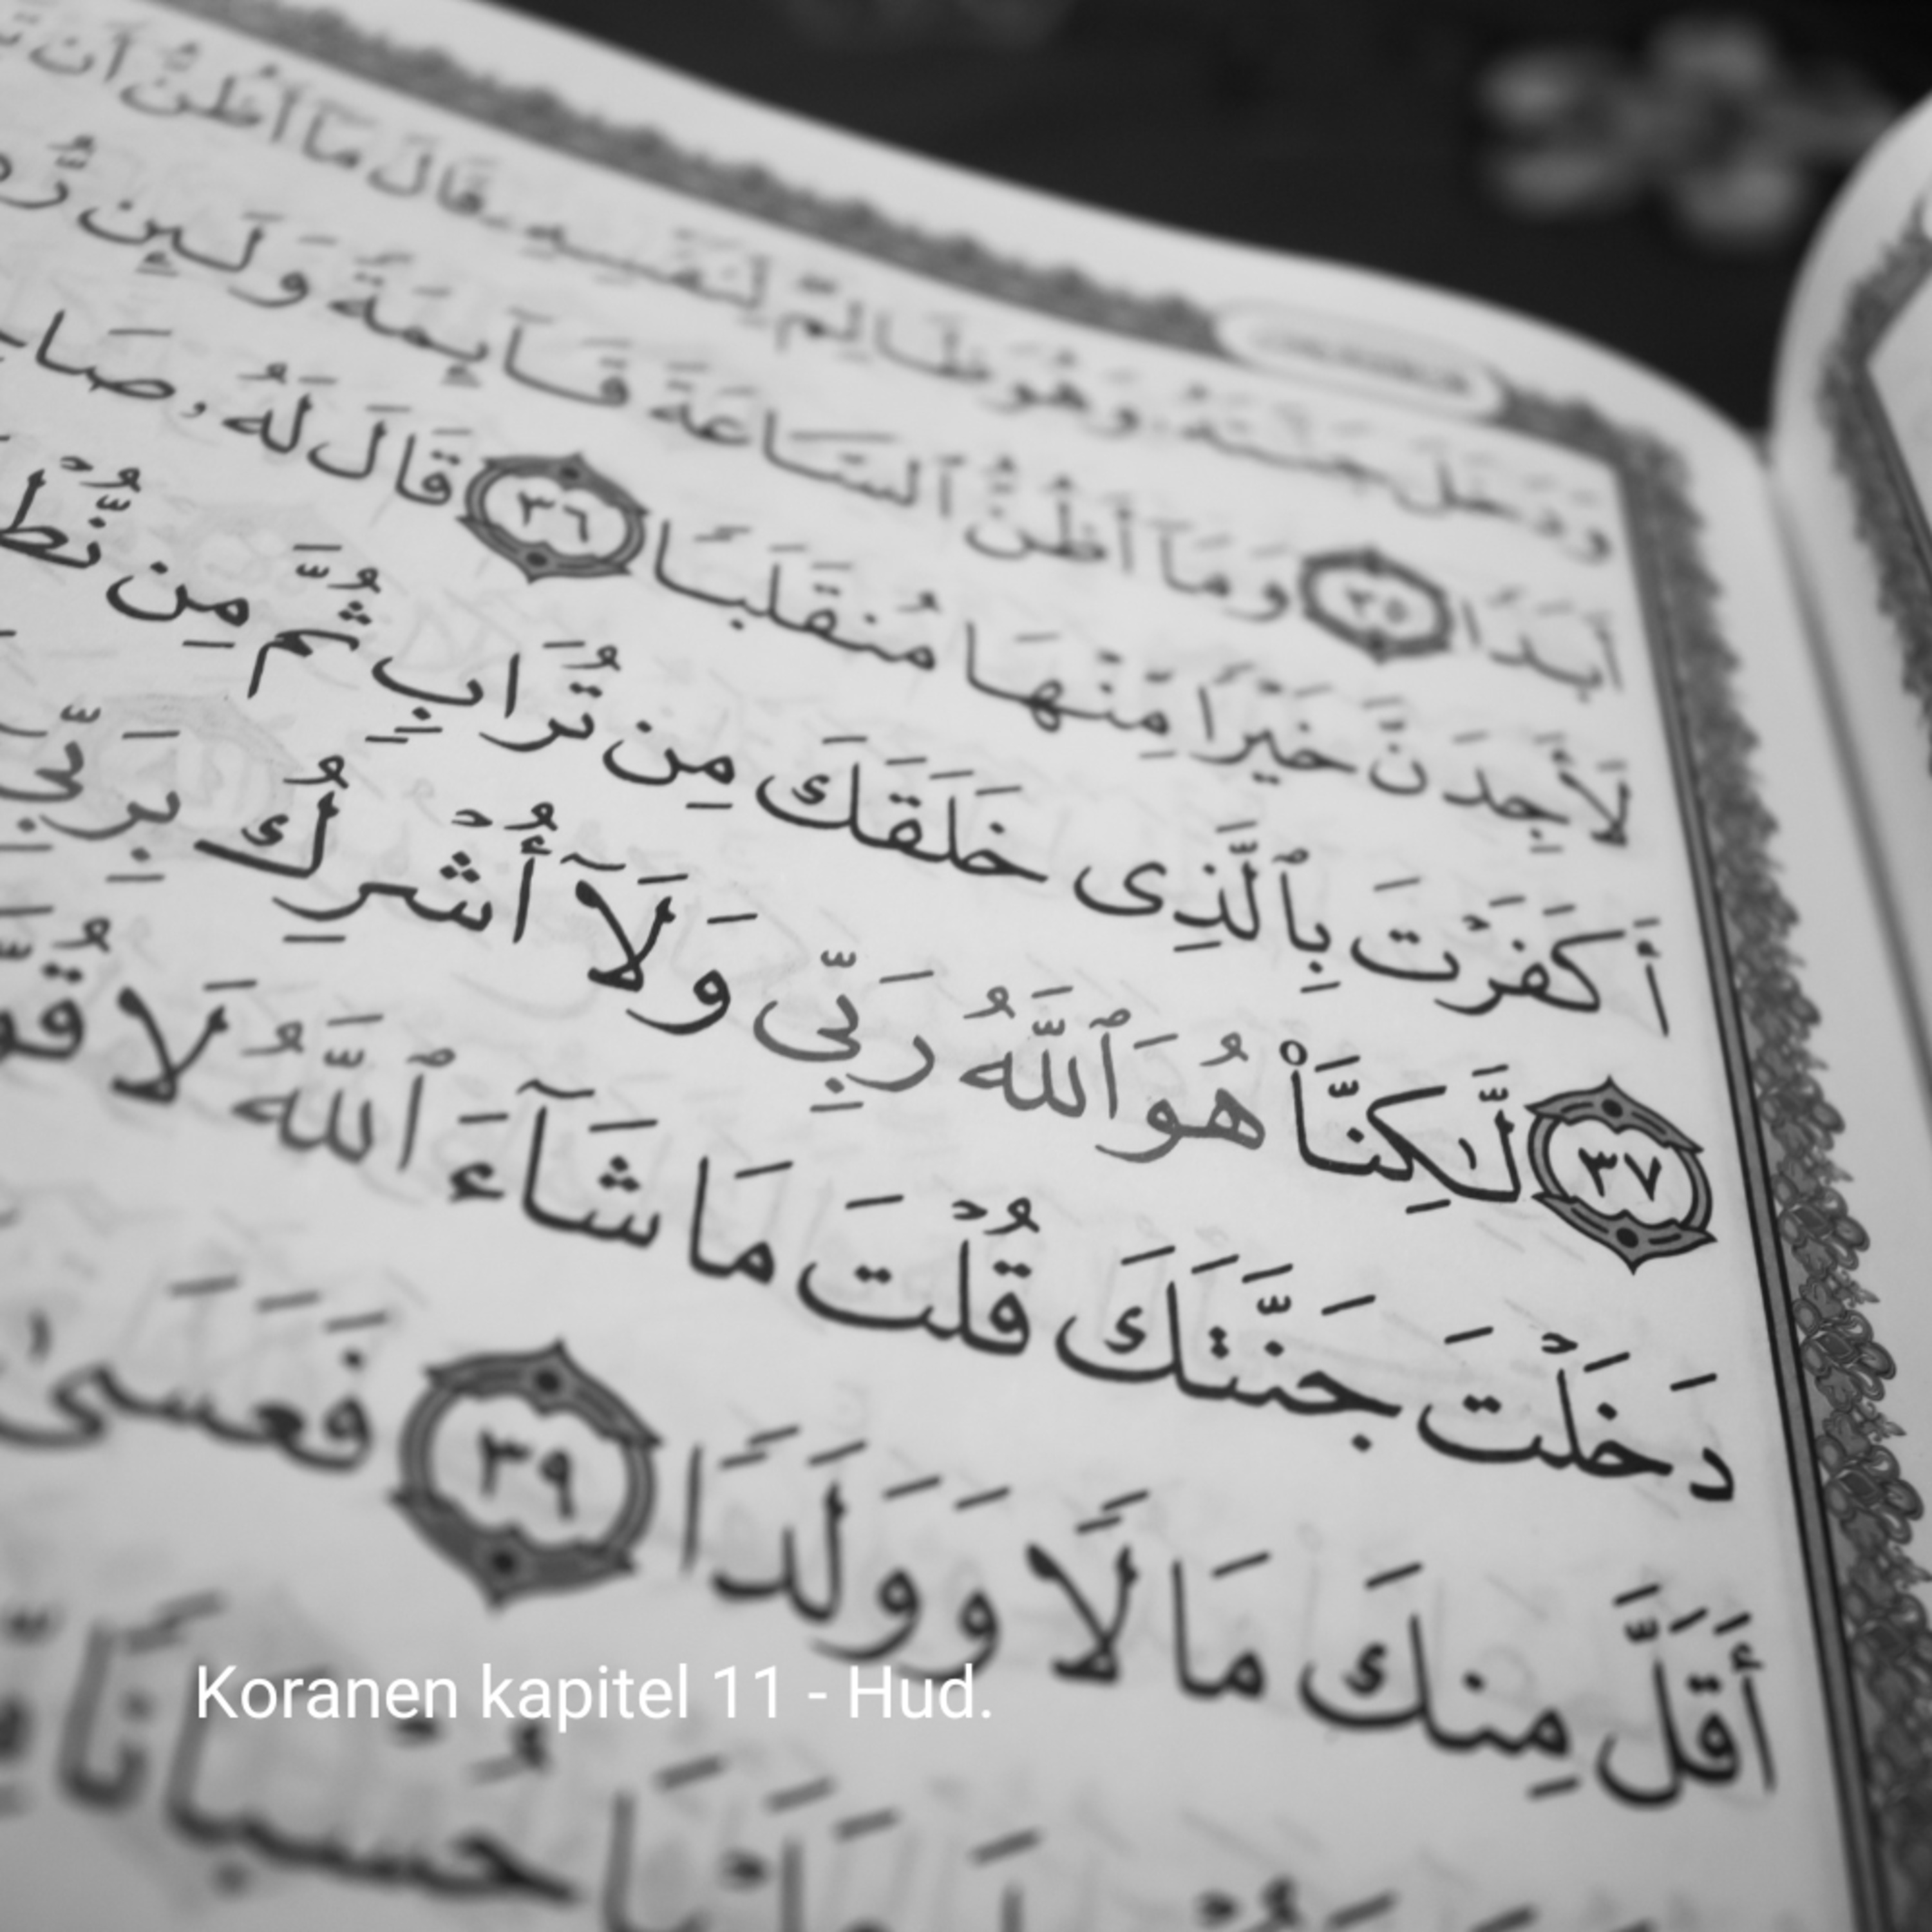 وَدَخَلَ جَنَّتَهُۥ وَهُوَ ظَالِمٌ لِّنَفْسِهِۦ قَالَ مَآ أَظُنُّ أَن
أَبَدًا ٣٥ وَمَآ أَظُنُّ ٱلسَّاعَةَ قَآئِمَةً وَلَئِن
لَأَجِدَنَّ خَيْرًا مِّنْهَا مُنقَلَبًا ٣٦ قَالَ لَهُۥ
أَكَفَرْتَ بِٱلَّذِى خَلَقَكَ مِن تُرَابٍ ثُمَّ مِن
٣٧ لَّٰكِنَّا۠ هُوَ ٱللَّهُ رَبِّى وَلَآ أُشْرِكُ بِرَبِّىٓ
دَخَلْتَ جَنَّتَكَ قُلْتَ مَا شَآءَ ٱللَّهُ لَا
أَقَلَّ مِنكَ مَالًا وَوَلَدًا ٣٩ فَعَسَىٰ
حُسْبَانًا
Koranen kapitel 11 - Hud.